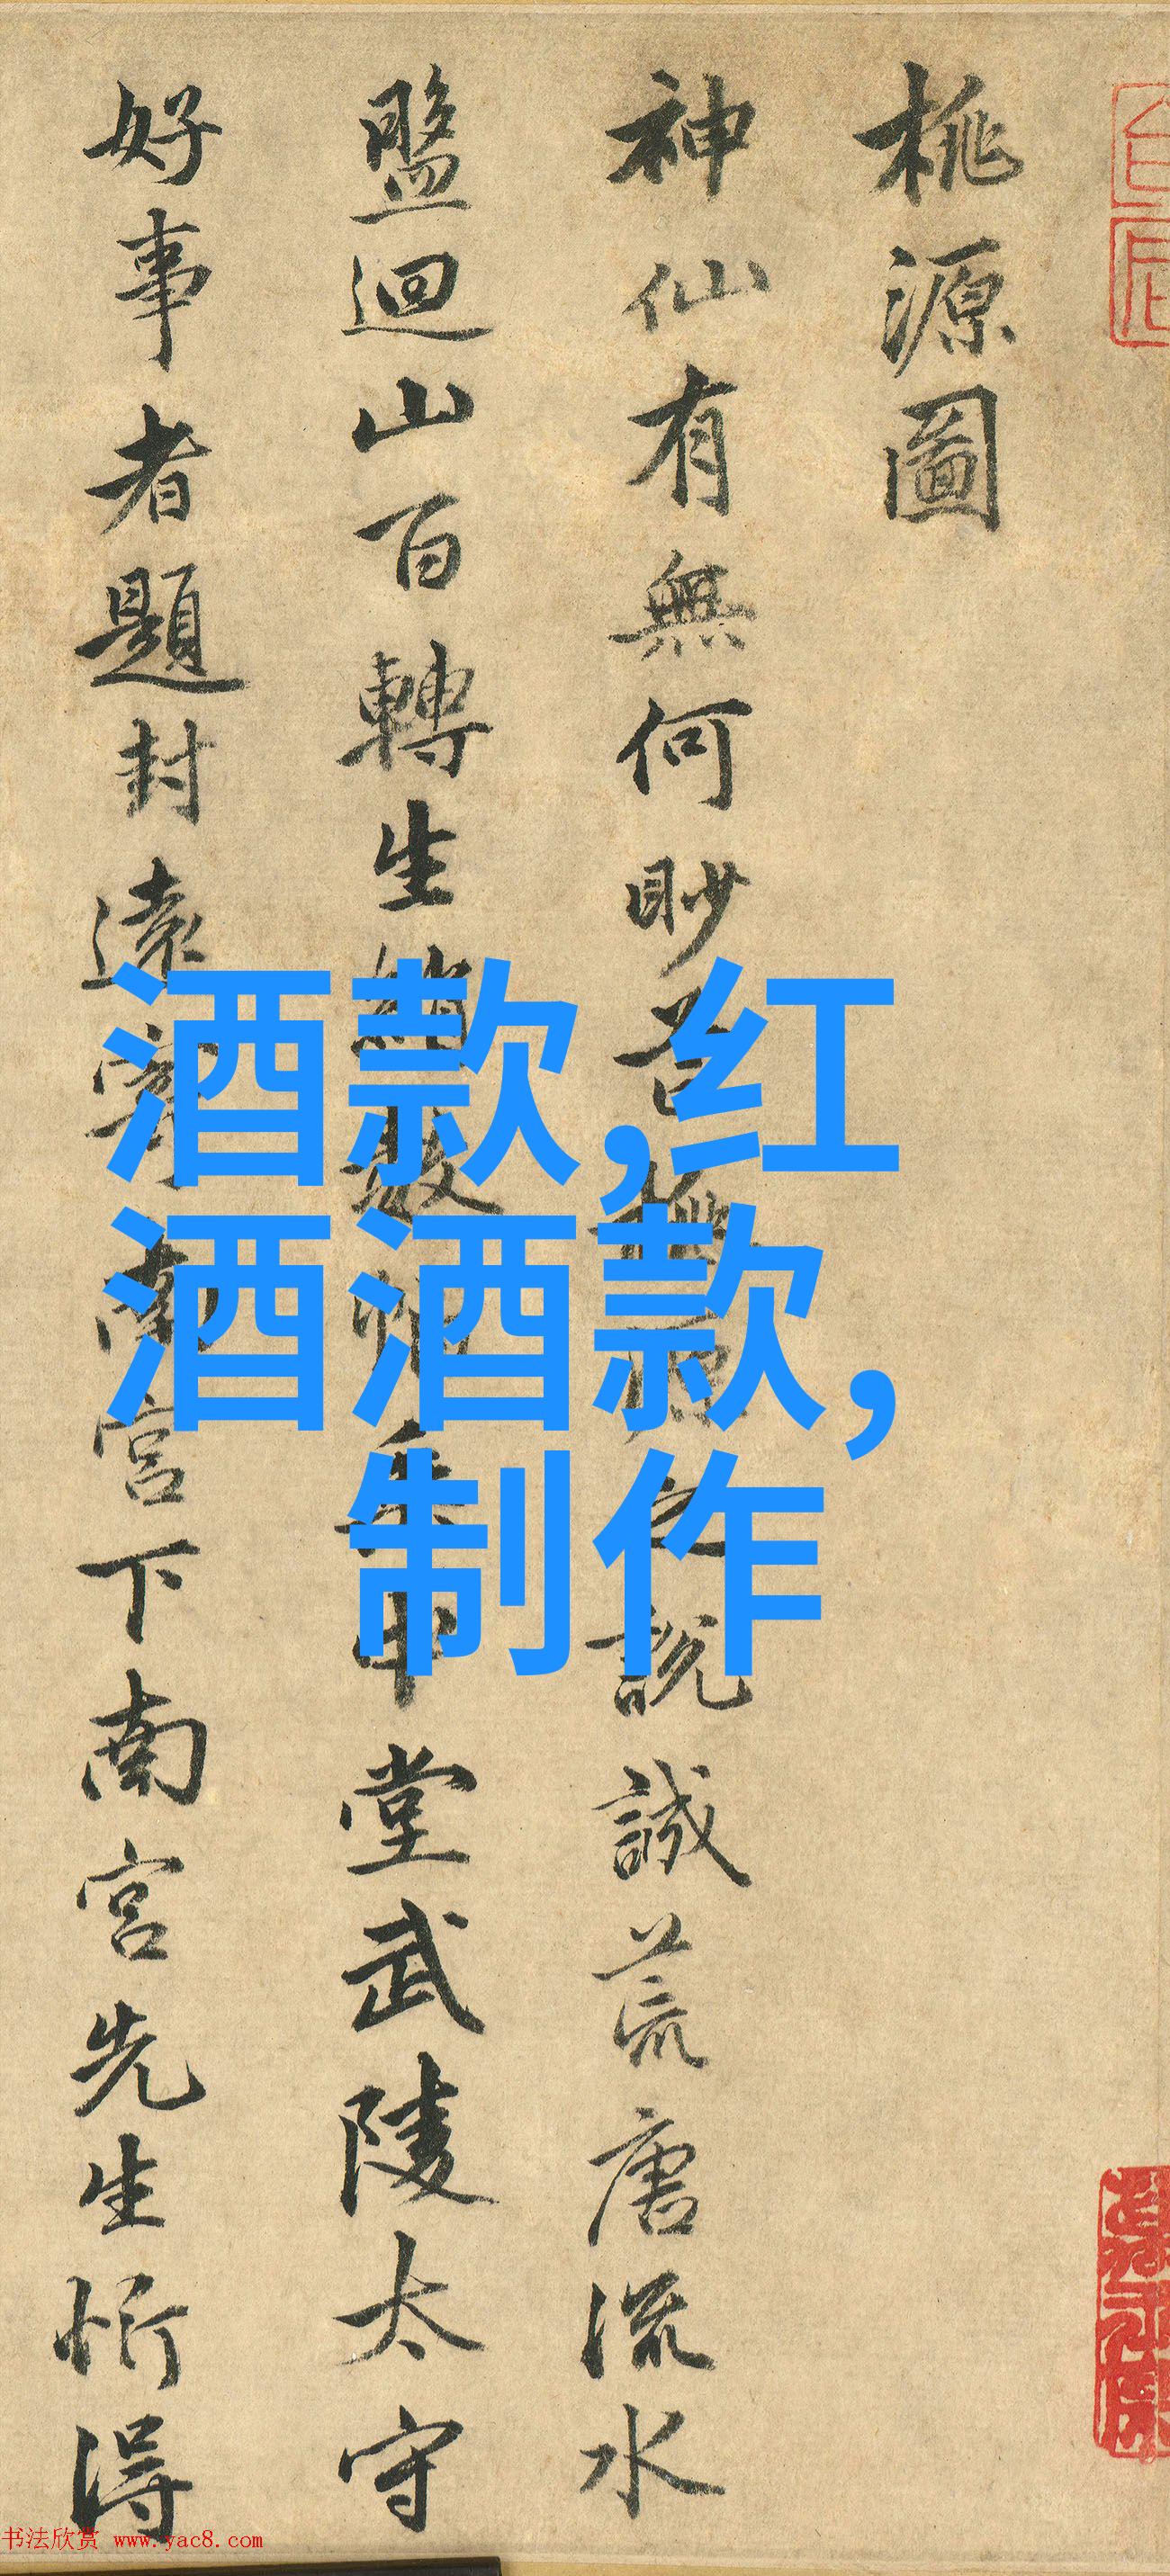 桃源圖
神仙有無何眇芒桃源之說誠荒唐流水
盤迴山百轉生綃數幅垂中堂武陵太守
好事者題封遠寄南宮下南宮先生忻得
酒款,红
酒酒款,
制作
书法欣赏 www.yac8.com